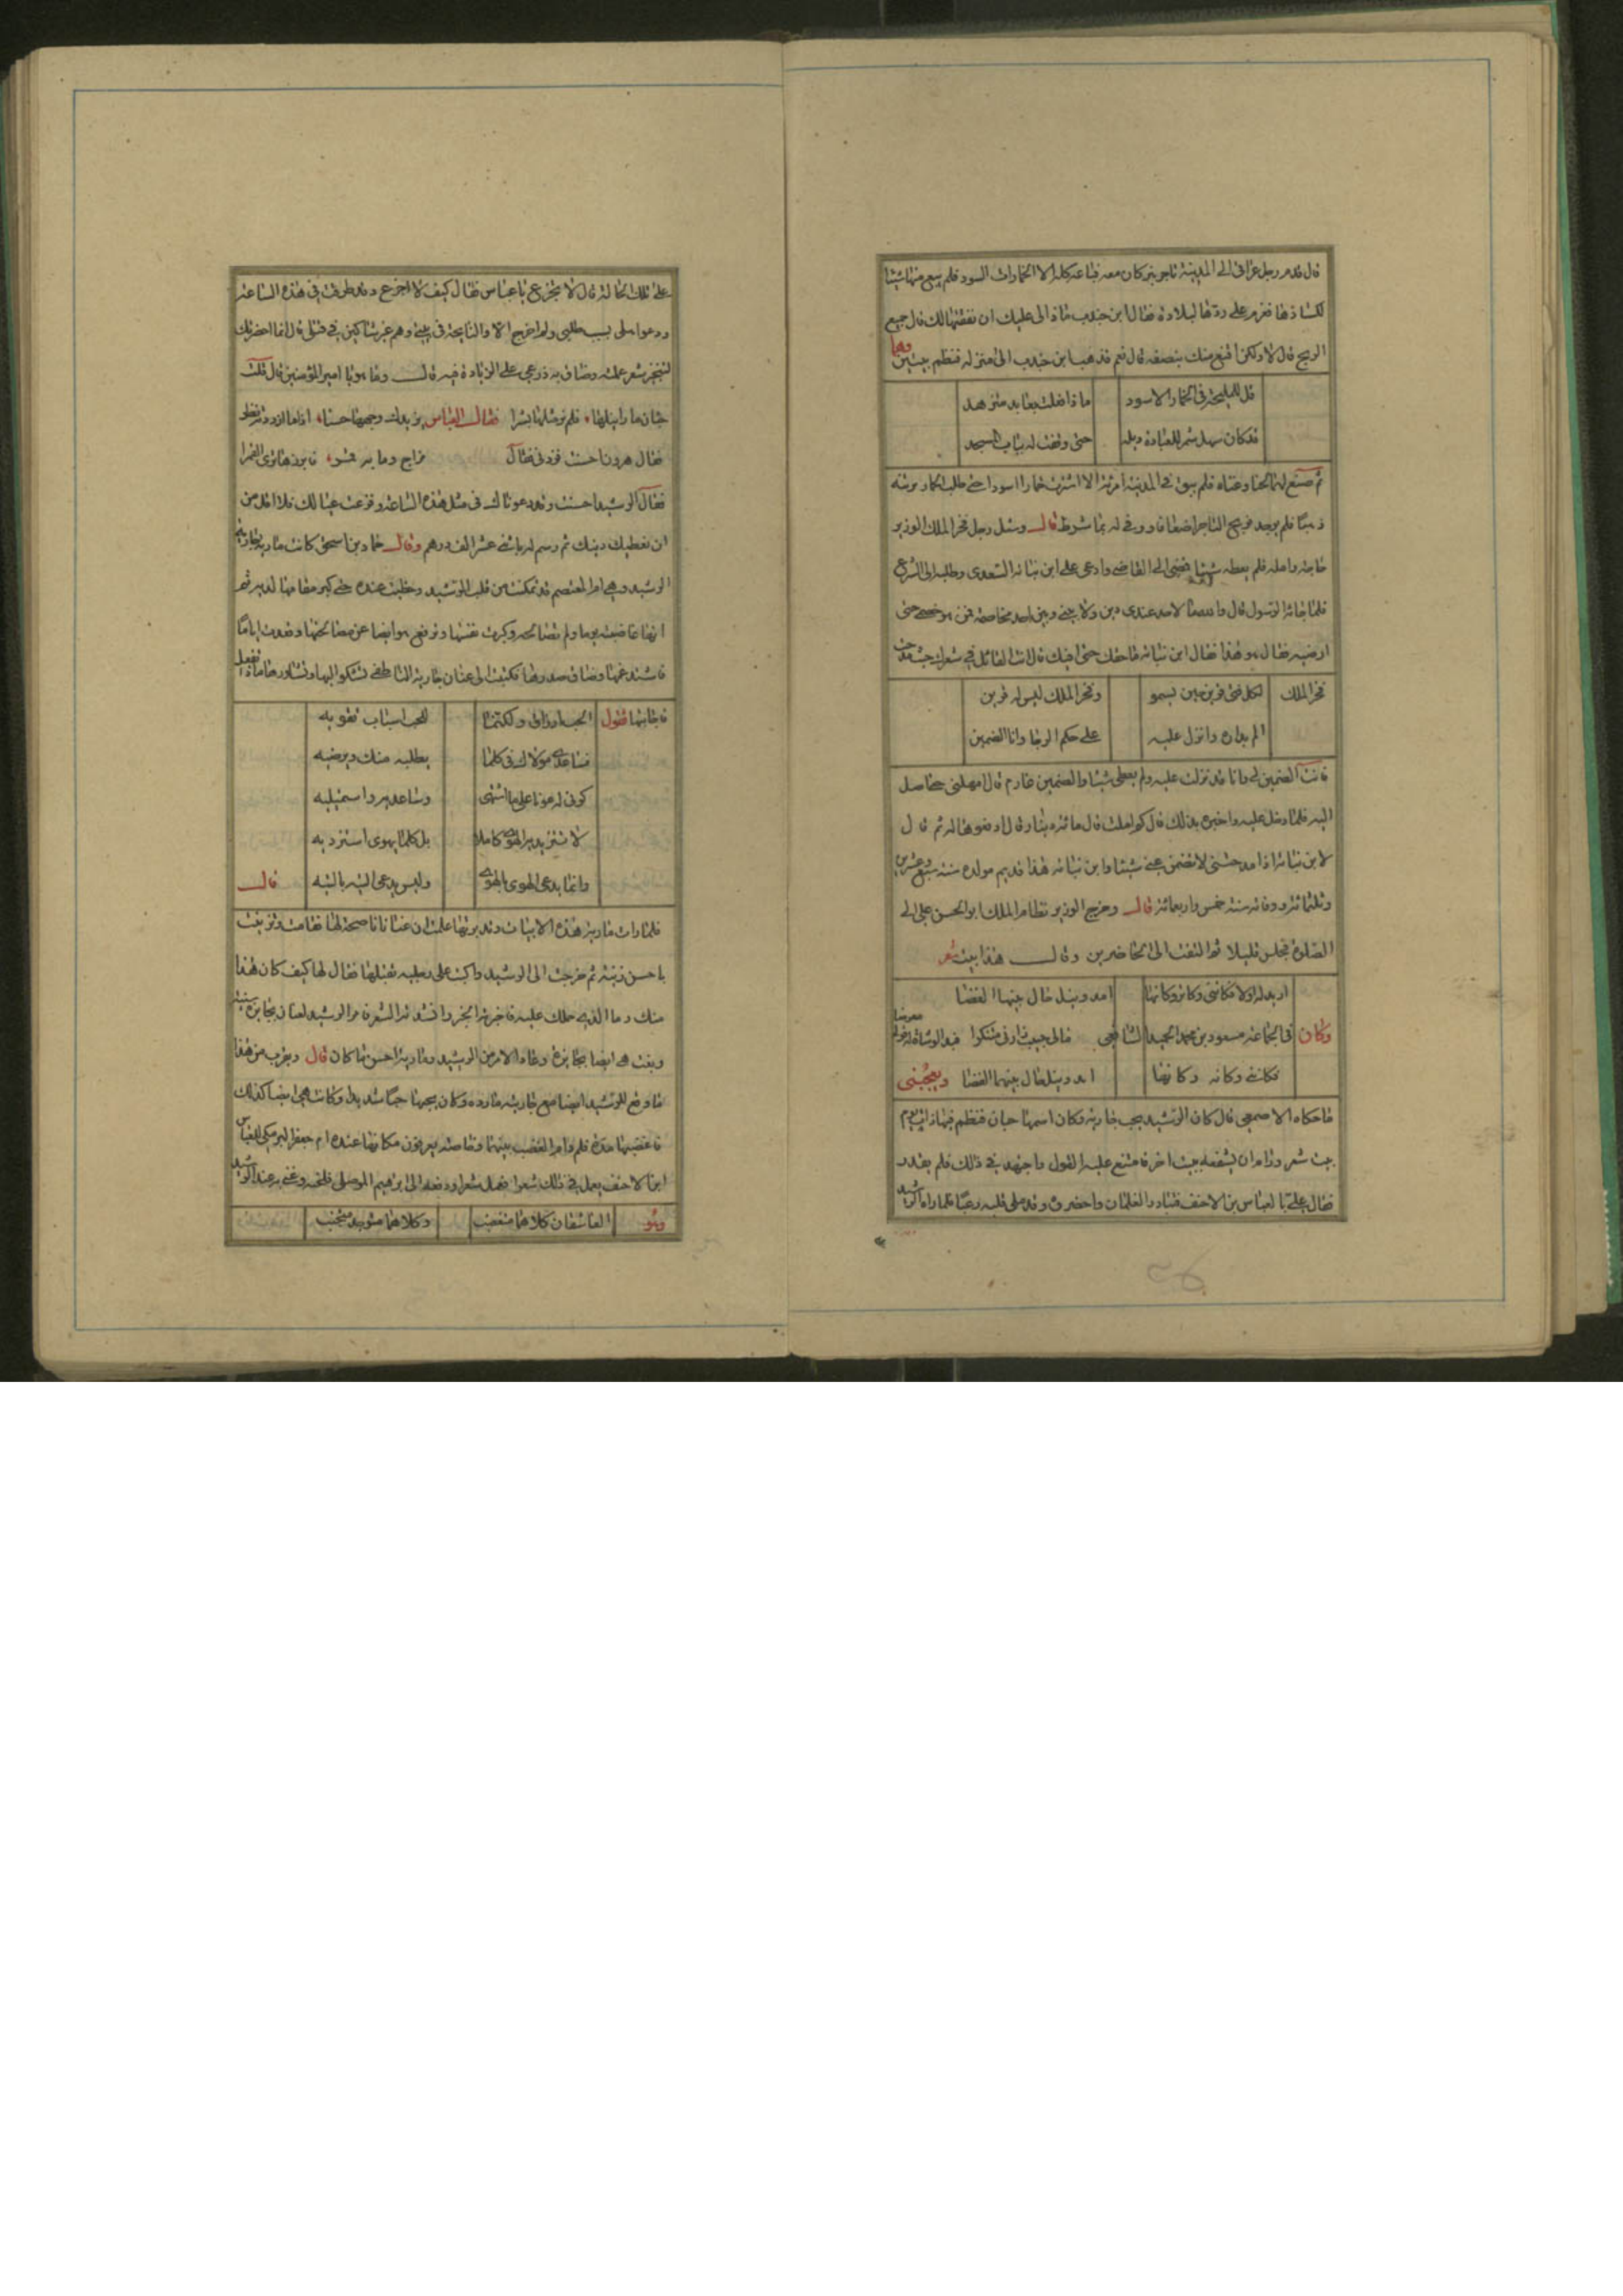 قال قدم رجل عراقي الى المدينة تاجر بتر كان معه فباعه كله الا الخمارات السود فلم يبع منها شيئا
لكسادها فعزم على ردها لبلاده فقال ابن جندب ماذا لي عليك ان نفقتها لك قال جميع
الربح قال لا ولكن اقنع منك بنصفه قال نعم فذهب ابن جندب الى منزله فنظم بيتين وهما
قل للمليحة في الخمار الاسود ماذا فعلت بعابد متزهد
قد كان سهل شمر للعبادة ذيله حتى وقفت له بباب المسجد
ثم صنع لهما لحنا وغناه فلم يبق في المدينة امرأة الا اشترت خمارا اسودا حتى طلب الخمار بزنته
ذهبا فلم يوجد فربح التاجر اضعافا ووفى له بما شرط قال وسئل رجل فخر الملك الوزير
حاجة وامله فلم يعطه شيئا فمضى الى القاضي وادعى على ابن نباتة السعدي وطلبه الى الشرع
فلما جاءه الرسول قال والله ما لاحد عندي دين ولا بيني وبين احد مخاصمة فمن هو خصمي حتى
ارضيه فقال هو هذا فقال ابن نباتة ما حقك حتى افيك قال انت القائل في شعرك حيث مدحت
فخر الملك لكل فتى قرين حين يسمو وفخر الملك ليس له قرين
الم بداره وانزل عليه على حكم الرجا وانا الضمين
فانت الضمين لي وانا قد نزلت عليه ولم يعطني شيئا والضمين غارم قال امهلني حتى اصل
اليه فلما دخل عليه واخبره بذلك قال كم املت قال مائة دينار قال ادفعوها له ثم قال
لابن نباتة اذا مدحتني لا تضمن عني شيئا وابن نباتة هذا قديم مولده سنة سبع وعشرين
وثلثمائة ووفاته سنة خمس واربعمائة قال وخرج الوزير نظام الملك ابو الحسن علي الى
الصلوة فجلس قليلا ثم التفت الى الحاضرين وقال هذا بيت شعر
امد وبنل حال بينهما الفضا
وكان في الجماعة مسعود بن محمد الشافعي فقال
فكانني وكانه وكانها امد ونيل حال بينهما القضا ويعجبني
ما حكاه الاصمعي قال كان الرشيد يحب جارية وكان اسمها جنان فنظم فيها ذات يوم
بيت شعر ورام ان يشفعه ببيت اخر فامتنع عليه القول واجتهد في ذلك فلم يقدر
فقال علي بالعباس بن الاحنف فتبادر الغلمان واحضروه وقد ملئ قلبه رعبا فلما راه الرشيد
على تلك الحالة قال لا تجزع يا عباس فقال كيف لا اجزع وقد طرقت في هذه الساعة
وروعوا اهلي بسبب طلبي ولم اخرج الا والنايحة في بيتي وهم غير شاكين في قتلي قال انما احضرتك
لتجيز شعر عملته وضاق به ذرعي على الزيادة فيه قال وما هو يا امير المؤمنين قال قلت
جنان ما رايناها فلم نر مثلها بشرا فقال العباس يزيدك وجهها حسنا اذا ما زدته نظرا
فقال هرون احسنت فزدني فقال
فقال الرشيد احسنت وقد دعوناك في مثل هذه الساعة وفزعت عيالك فلا اقل من
ان نعطيك ديتك ثم رسم له باثني عشر الف درهم وقال حماد بن اسحق كانت مارية جارية
الرشيد وهي ام المعتصم قد تمكنت من قلب الرشيد وحظيت عنده حتى كبر مقامها لديه ثم
انها غاضبته يوما ولم تصالحه وكبرت نفسها وترفع هو ايضا عن مصالحتها وصدت اياما
فاشتد غمها وضاق صدرها فكتبت الى عنان جارية الناطفي تشكو اليها وتشاورها ماذا تفعل
فاجابتها تقول الحب ارزاق ولكنما للحب اسباب تقويه
فساعدي مولاك في كلما يطلبه منك ويرضيه
كوني له عونا على ما اشتهى وساعديه واستميليه
لا تستزيديه الهوى كاملا بل كلما يهوى استزديه
وانما يدعى الهوى بالهوى وليس يدعى التيه بالتيه قال
فلما رات مارية هذه الابيات وتدبرتها علمت ان عنانا ناصحة لها فقامت وتزينت
باحسن زينة ثم خرجت الى الرشيد واكبت على رجليه تقبلها فقال لها كيف كان هذا
منك وما الذي حملك عليه فاخبرته الخبر وانشدته الشعر فامر الرشيد لعنان بجايزة سنية
وبعثت هي ايضا بجايزة وعاد الامر بين الرشيد ومارية احسن ما كان قال ويقرب من هذا
ما وقع للرشيد ايضا مع جاريته مارده وكان يحبها حبا شديدا وكانت هي ايضا كذلك
فاغضبها مدة فلم دام الغضب بينهما وخاصته يعرفون مكانها عنده ام جعفر البرمكي للعباس
ابن الاحنف يعمل في ذلك شعرا فعمل شعرا ودفعه الى ابرهيم الموصلي فلحنه وغنى به عند الرشيد
وهو العاشقان كلاهما متغضب وكلاهما متوجد متجنب